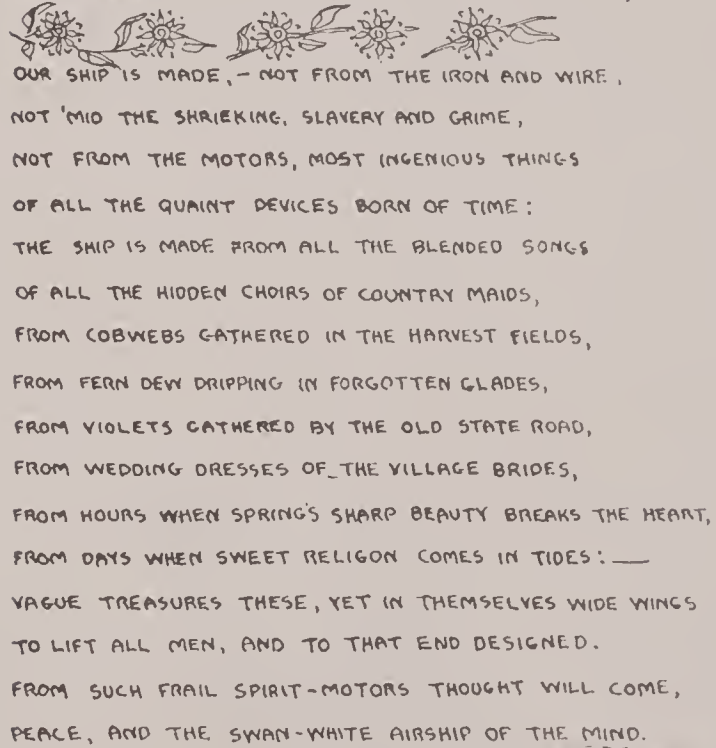 OUR SHIP IS MADE, - NOT FROM THE IRON AND WIRE,
NOT 'MID THE SHRIEKING, SLAVERY AND GRIME,
NOT FROM THE MOTORS, MOST INGENIOUS THINGS
OF ALL THE QUAINT DEVICES BORN OF TIME:
THE SHIP IS MADE FROM ALL THE BLENDED SONGS
OF ALL THE HIDDEN CHOIRS OF COUNTRY MAIDS,
FROM COBWEBS GATHERED IN THE HARVEST FIELDS,
FROM FERN DEW DRIPPING IN FORGOTTEN GLADES,
FROM VIOLETS GATHERED BY THE OLD STATE ROAD,
FROM WEDDING DRESSES OF THE VILLAGE BRIDES,
FROM HOURS WHEN SPRING'S SHARP BEAUTY BREAKS THE HEART,
FROM DAYS WHEN SWEET RELIGON COMES IN TIDES: —
VAGUE TREASURES THESE, YET IN THEMSELVES WIDE WINGS
TO LIFT ALL MEN, AND TO THAT END DESIGNED.
FROM SUCH FRAIL SPIRIT-MOTORS THOUGHT WILL COME,
PEACE, AND THE SWAN-WHITE AIRSHIP OF THE MIND.